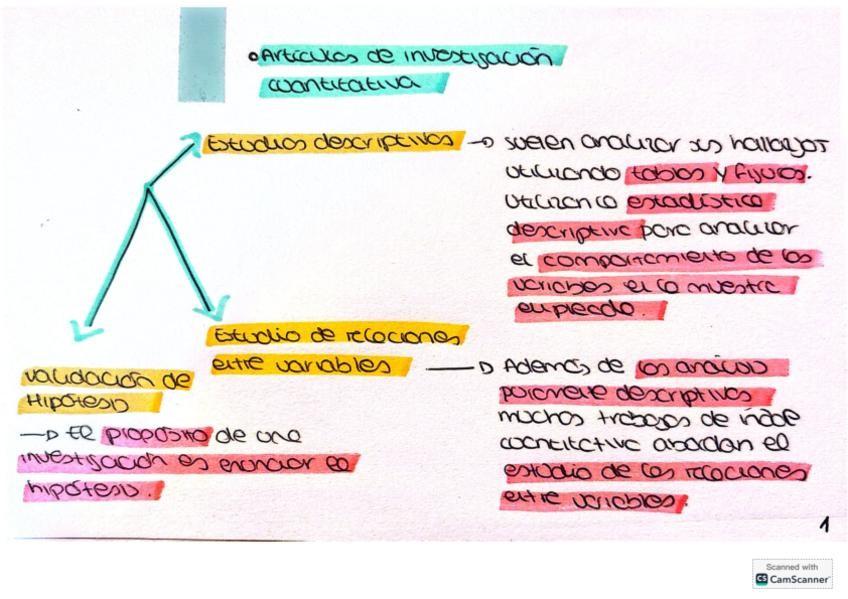 Artículos de investigación
cuantitativa
Estudios descriptivos → suelen analizar sus hallazgos
utilizando tablas y figuras.
Utilizan la estadística
descriptiva para analizar
el comportamiento de las
variables en la muestra
empleada.
Estudio de relaciones
entre variables → Además de los análisis
puramente descriptivos
muchos trabajos de índole
cuantitativa abordan el
estudio de las relaciones
entre variables.
validación de
Hipótesis
→ El propósito de una
investigación es enunciar la
hipótesis.
1
Scanned with
CS CamScanner